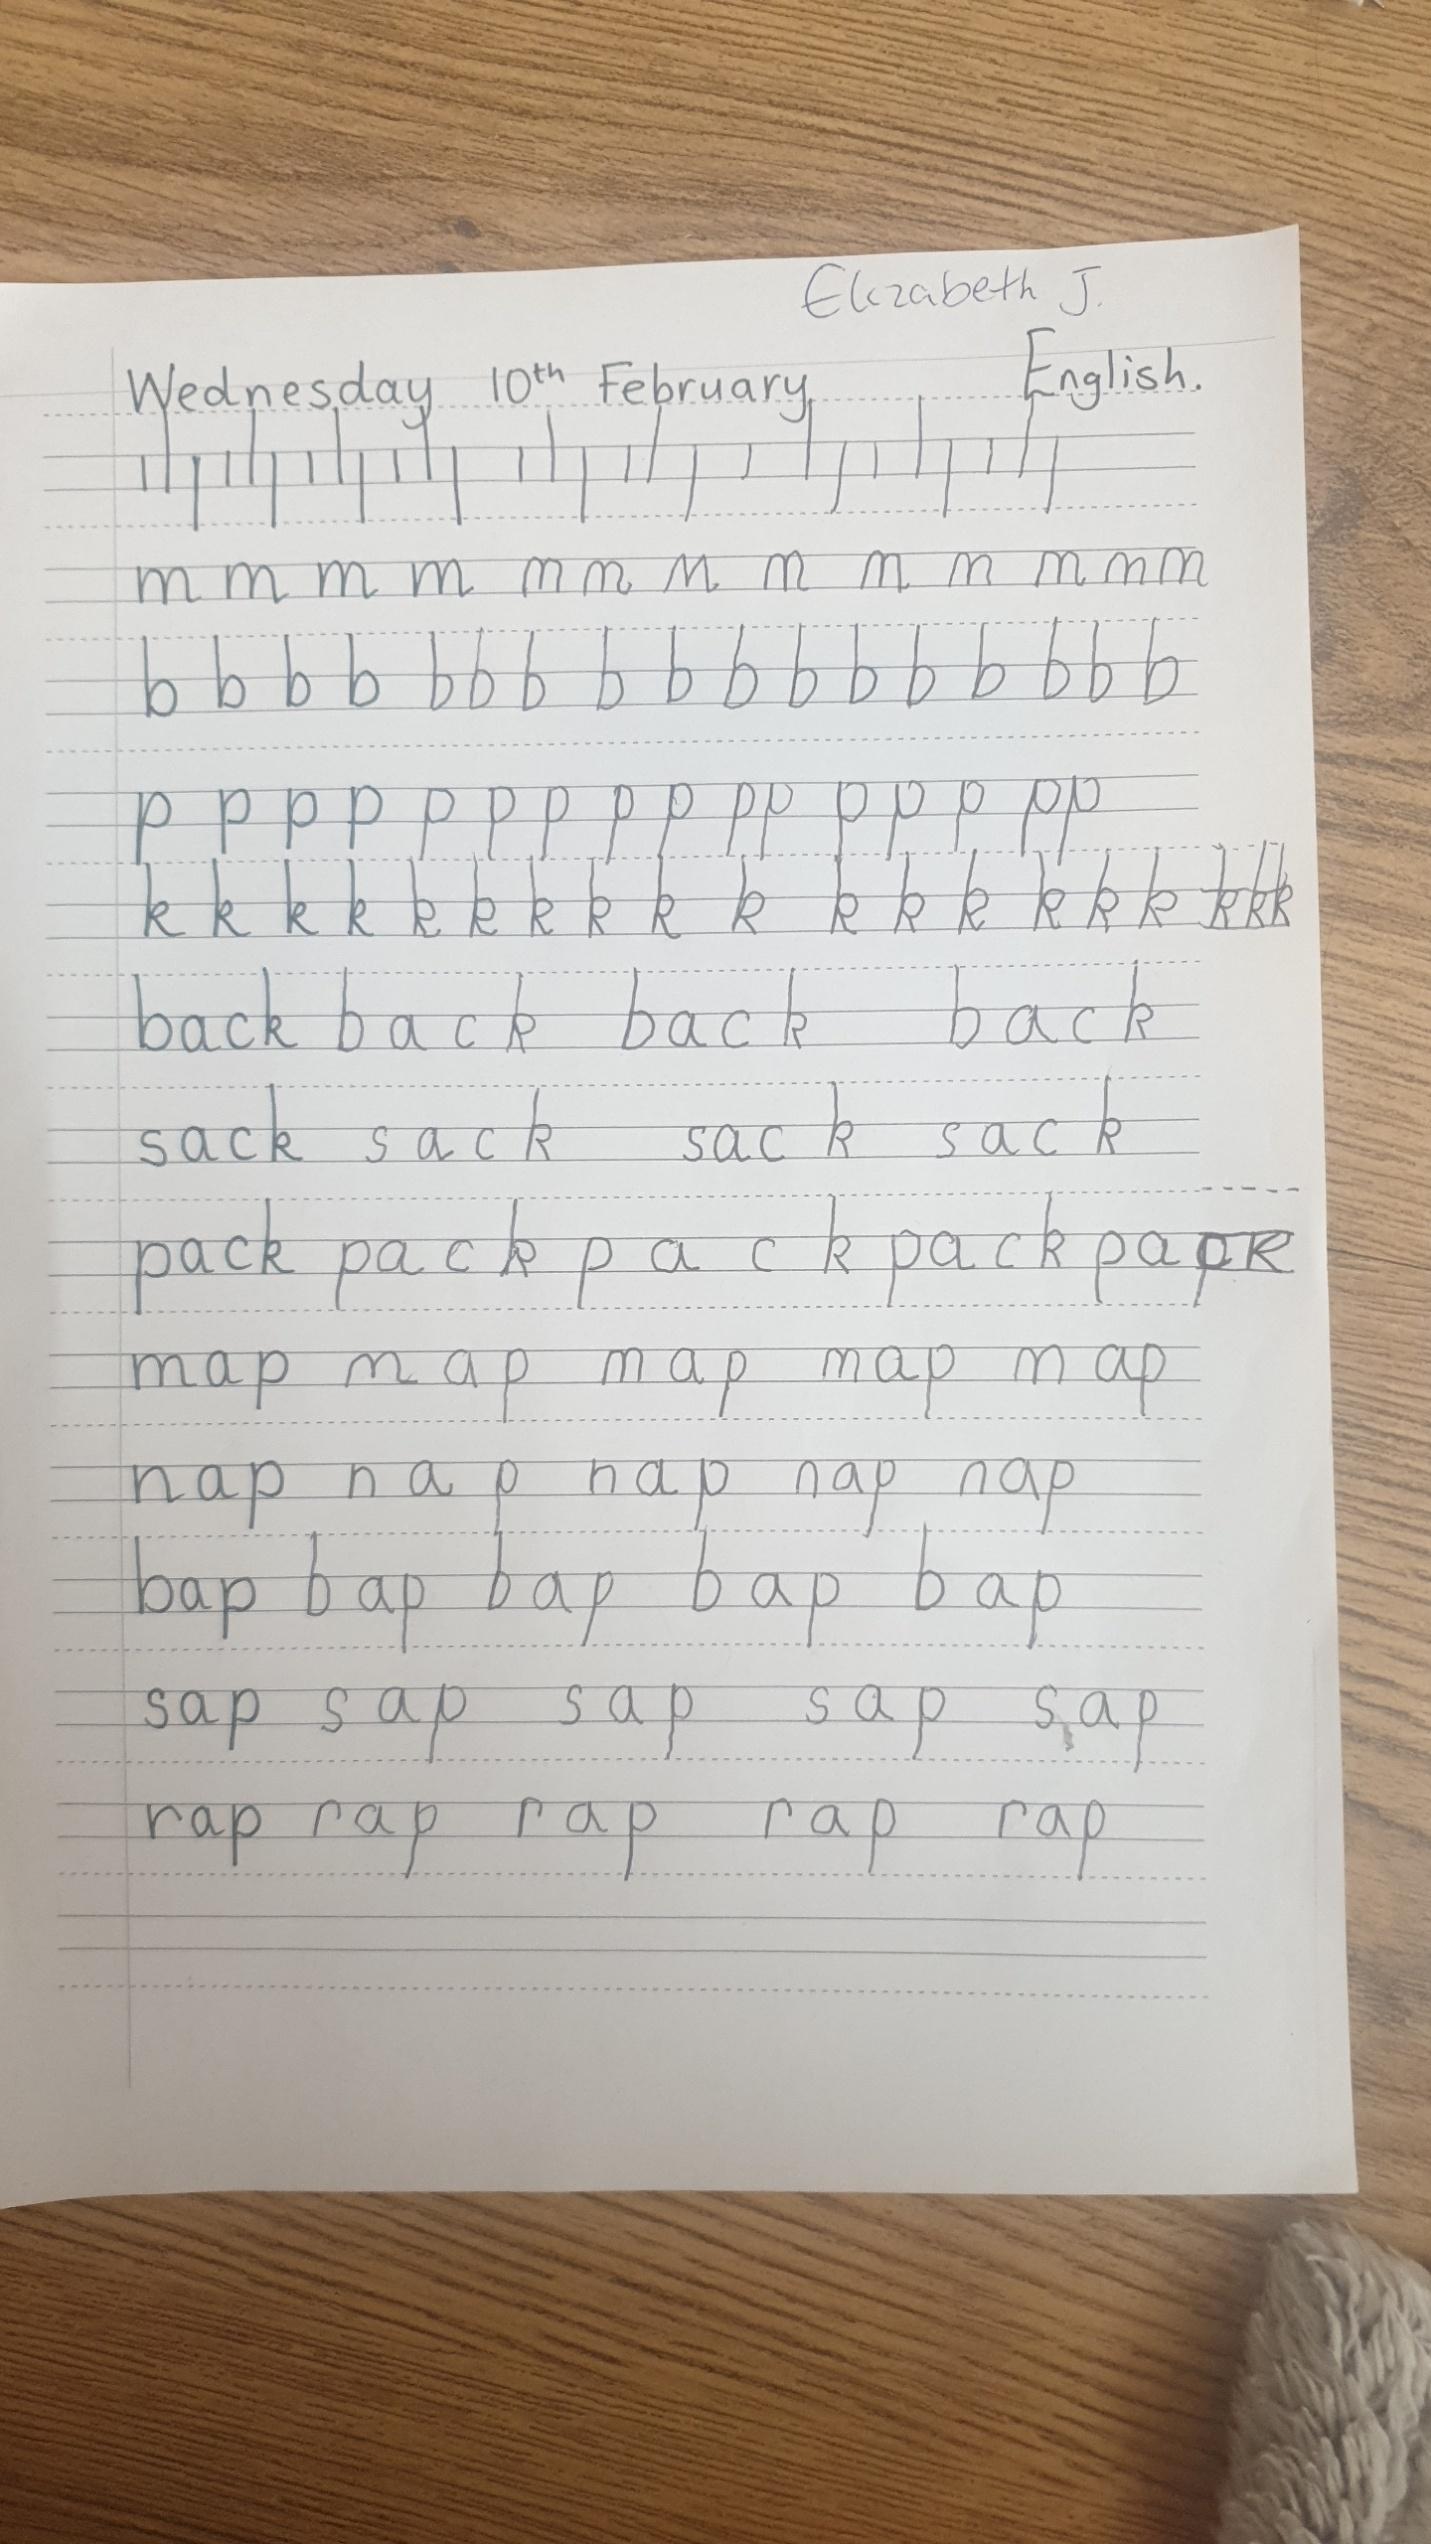 Elizabeth J.
Wednesday 10th February English.
m m m m m m m m m m m m m
b b b b b b b b b b b b b b b b b
p p p p p p p p p p p p p p p p
k k k k k k k k k k k k k k k k k k k
back back back back
sack sack sack sack
pack pack pack pack pack
map map map map map
nap nap nap nap nap
bap bap bap bap bap
sap sap sap sap sap
rap rap rap rap rap